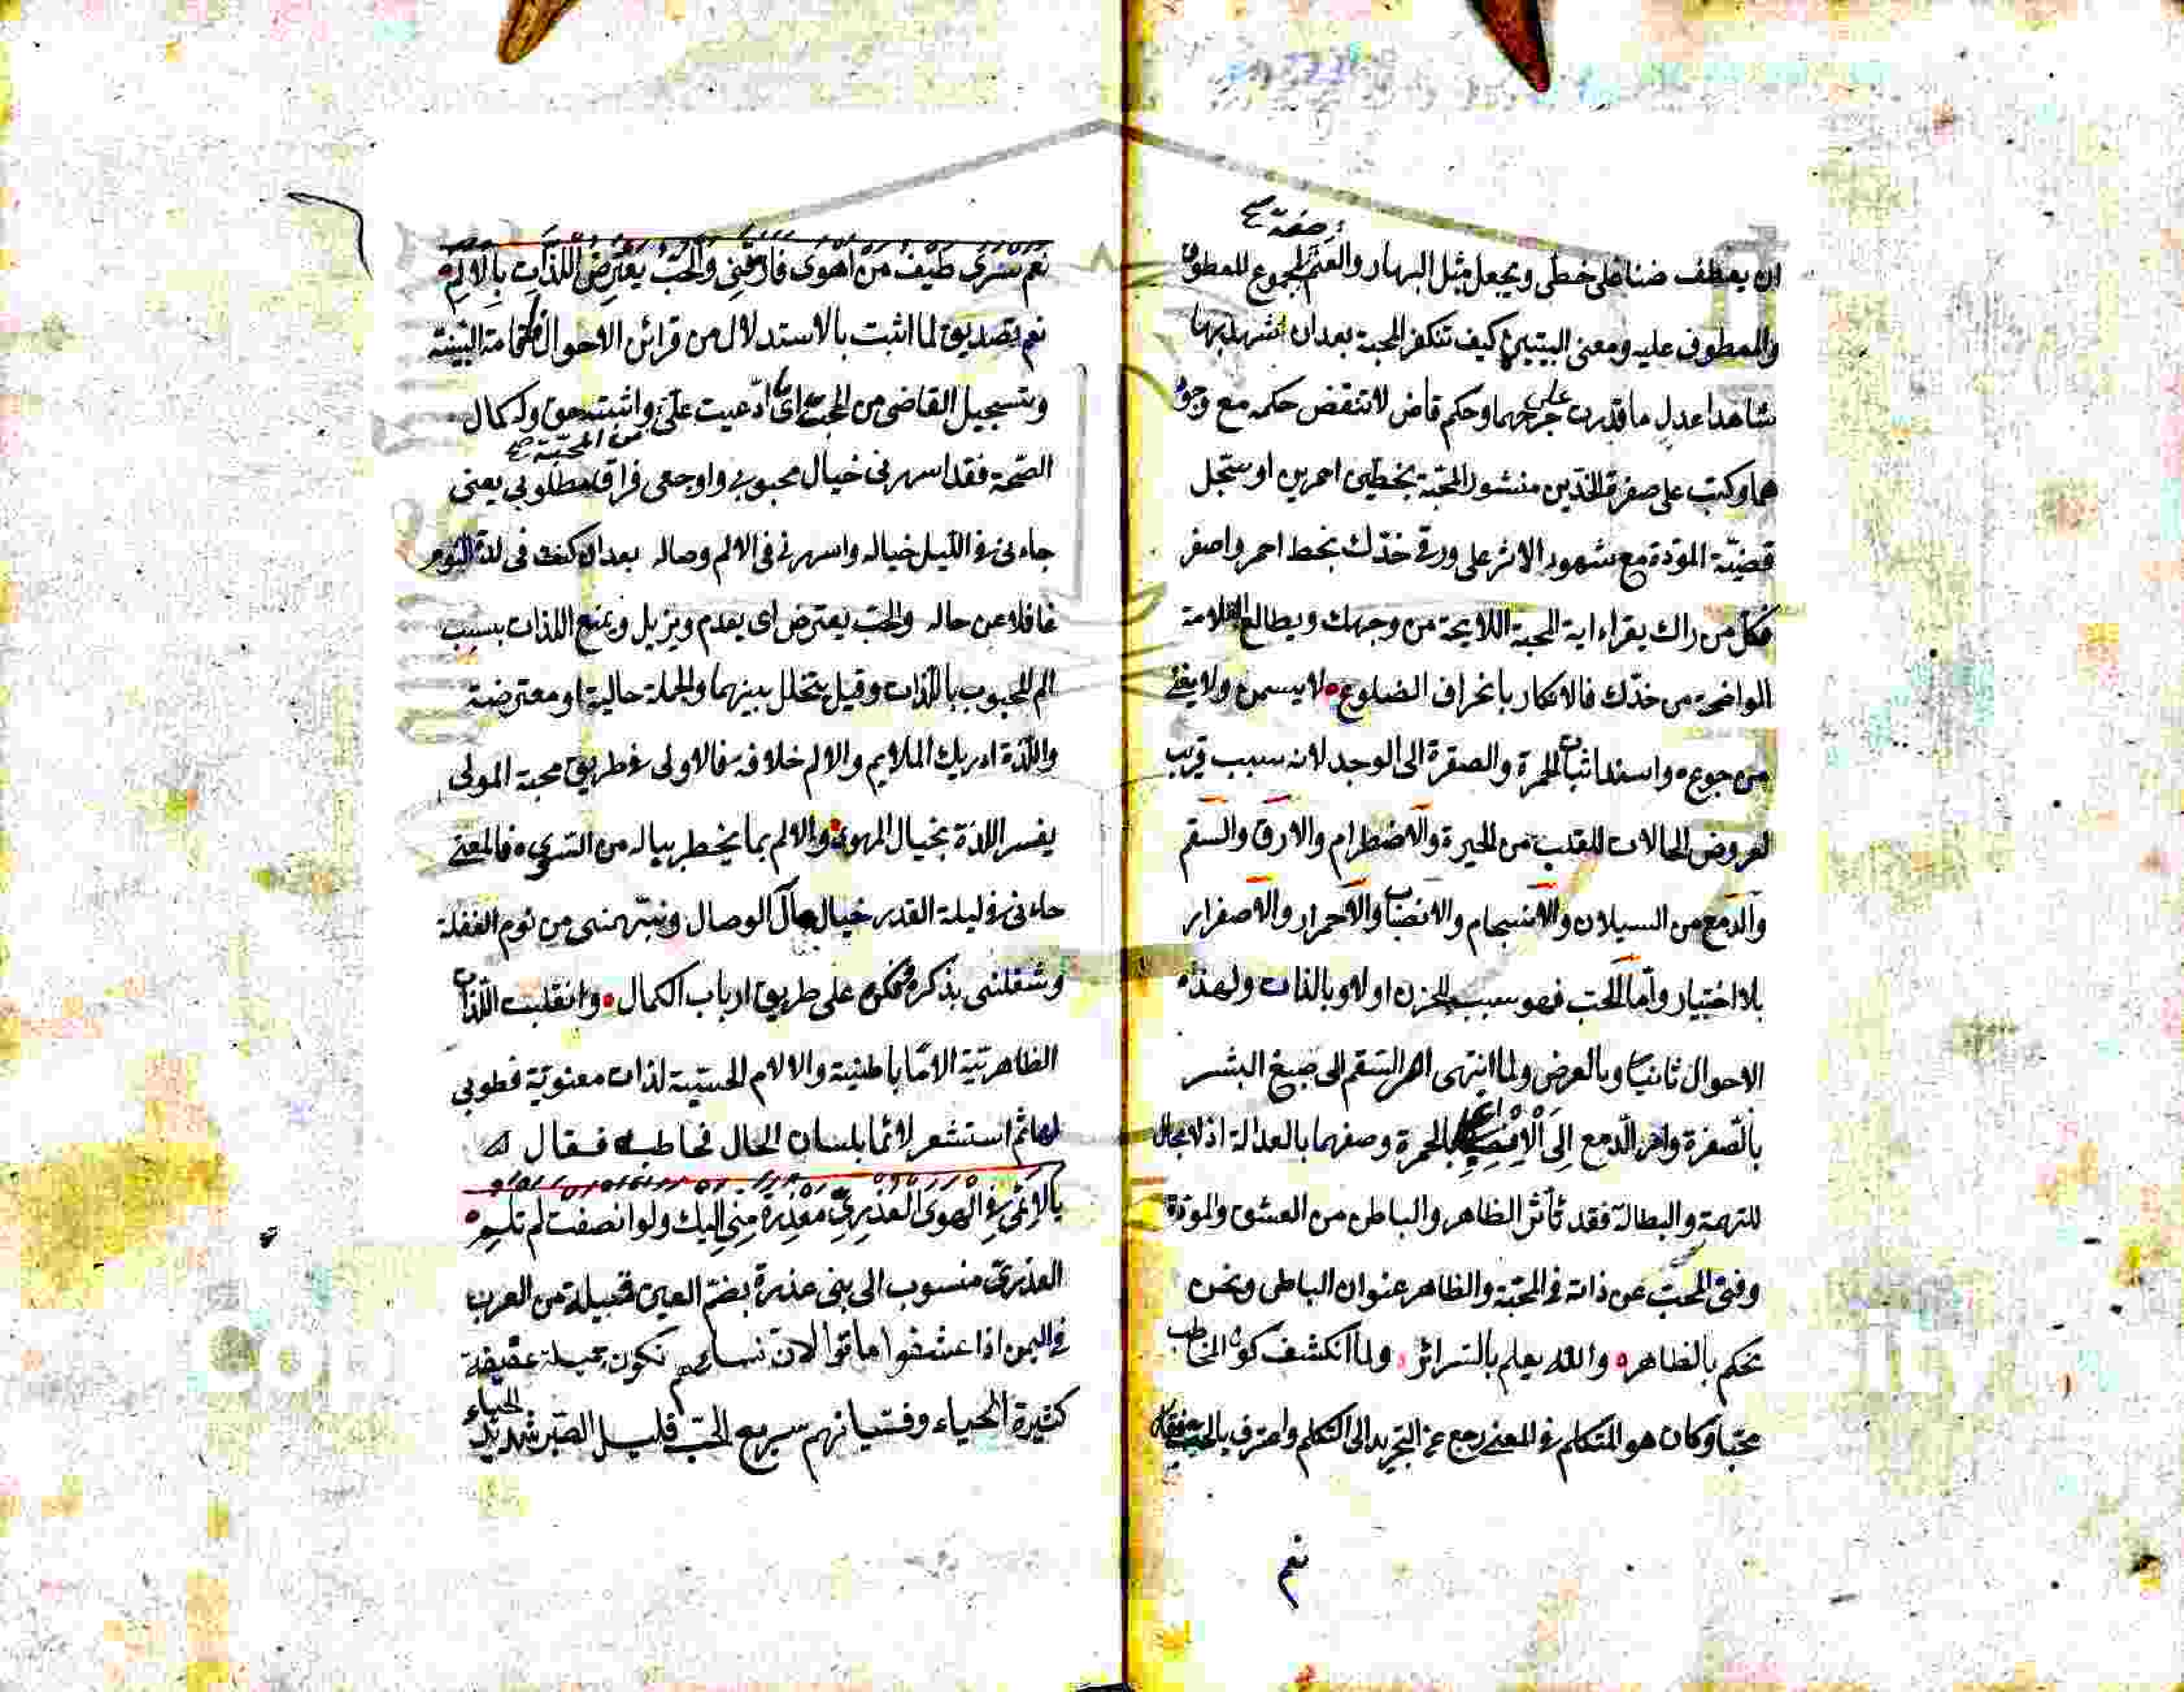 صفة
ان يعطف ضنا على خطى ويجعل مثل البهار والعنم لمجموع المعطوف
والمعطوف عليه ومعنى البيتين كيف تنكر المحبة بعد ان شهد بها
شاهدا عدل ما قدرت على جرحهما وحكم قاض لا تنقض حكمه مع وجود
هما وكتب على صفرة الخدين منشور المحبة بخطين احمرين او سجل
قضية المودة مع شهود الاثر على ورق خدك بخط احمر واصفر
فكل من راك يقراء اية المحبة اللايحة من وجهك ويطالع العلامة
الواضحة من خدك فالانكار بانحراف الضلوع لا يسمن ولا يغني
من جوع واسند اثبات الحمرة والصفرة الى الوجد لانه سبب قريب
لعروض الحالات للقلب من الحيرة والاضطرام والارق والسقم
والدمع من السيلان والانسجام والانصباب والاحمرار والاصفرار
بلا اختيار واما الحب فهو سبب للحزن اولا وبالذات ولهذه
الاحوال ثانيا وبالعرض ولما انتهى امر السقم الى صبغ البشر
بالصفرة وامر الدمع الى بالحمرة وصفهما بالعدالة اذ لا مجال
للتهمة والبطالة فقد تأثر الظاهر والباطن من العشق والمودة
وفنى المحب عن ذاته في المحبة والظاهر عنوان الباطن ونحن
نحكم بالظاهر والله يعلم بالسرائر ولما انكشف كون المخاطب
محبا وكان هو المتكلم في المعنى رجع عن التجريد الى التكلم واعترف بالحب فقال
نعم
نعم سرى طيف من اهوى فارقني والحب يعترض اللذات بالالم
نعم تصديق لما اثبت بالاستدلال من قرائن الاحوال واقامة البينة
وتسجيل القاضي من المحبة اى ما ادعيت علي واثبته حق ولد كمال
من المحبة
الصحة فقد اسهرني خيال محبوبي واوجعني فراق مطلوبي يعني
جاءني في الليل خياله واسهرني في الالم وصاله بعد ان كنت في لذة النوم
غافلا عن حاله والحب يعترض اى يعدم ويزيل ويمنع اللذات بسبب
الم المحبوب باللذات وقيل يتخلل بينهما والجملة حالية او معترضة
واللذة ادريك الملايم والالم خلافه فالاولى في طريق محبة المولى
يفسر اللذة بخيال المهوى والالم بما يخطر بباله من السوى فالمعنى
جاءني في ليلة القدر خيال مآل الوصال ونبهنى من نوم الغفلة
وشغلنى بذكره وفكره على طريق ارباب الكمال وانقلبت اللذات
الظاهرية الاما باطنية والالام الحسية لذات معنوية فطوبى
لها ثم استشعر لائما بلسان الحال فخاطبه فقال
يا لائمي في الهوى العذري معذرة مني اليك ولو انصفت لم تلم
العذري منسوب الى بنى عذرة بضم العين قبيلة من العرب
في اليمن اذا عشقوا ماتوا لان نساءهم تكون جميلة عفيفة
كثيرة الحياء وفتيانهم سريع الحب قليل الصبر شديد الحياء